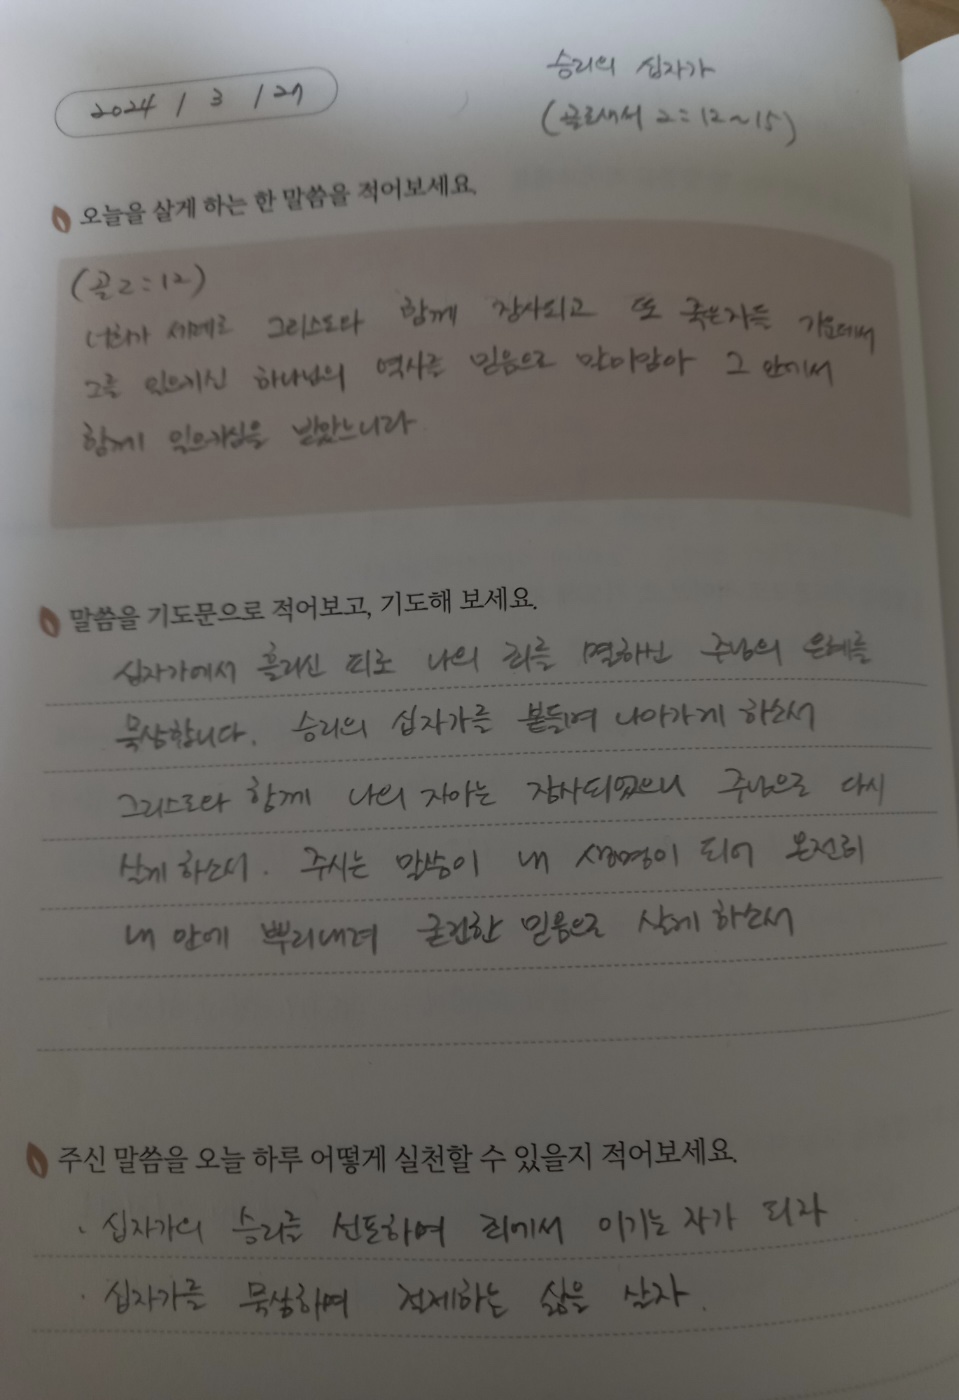 2024 / 3 / 27
승리의 십자가
(골로새서 2:12~15)
오늘을 살게 하는 한 말씀을 적어보세요.
(골2:12)
너희가 세례로 그리스도와 함께 장사되고 또 죽은자들 가운데서
그를 일으키신 하나님의 역사를 믿음으로 말미암아 그 안에서
함께 일으키심을 받았느니라
말씀을 기도문으로 적어보고, 기도해 보세요.
십자가에서 흘리신 피로 나의 죄를 멸하신 주님의 은혜를
묵상합니다. 승리의 십자가를 붙들며 나아가게 하소서
그리스도와 함께 나의 자아는 장사되었으니 주님으로 다시
살게 하소서. 주시는 말씀이 내 생명이 되어 온전히
내 안에 뿌리내려 굳건한 믿음으로 살게 하소서
주신 말씀을 오늘 하루 어떻게 실천할 수 있을지 적어보세요.
· 십자가의 승리를 선포하여 죄에서 이기는 자가 되자
· 십자가를 묵상하며 절제하는 삶을 살자.